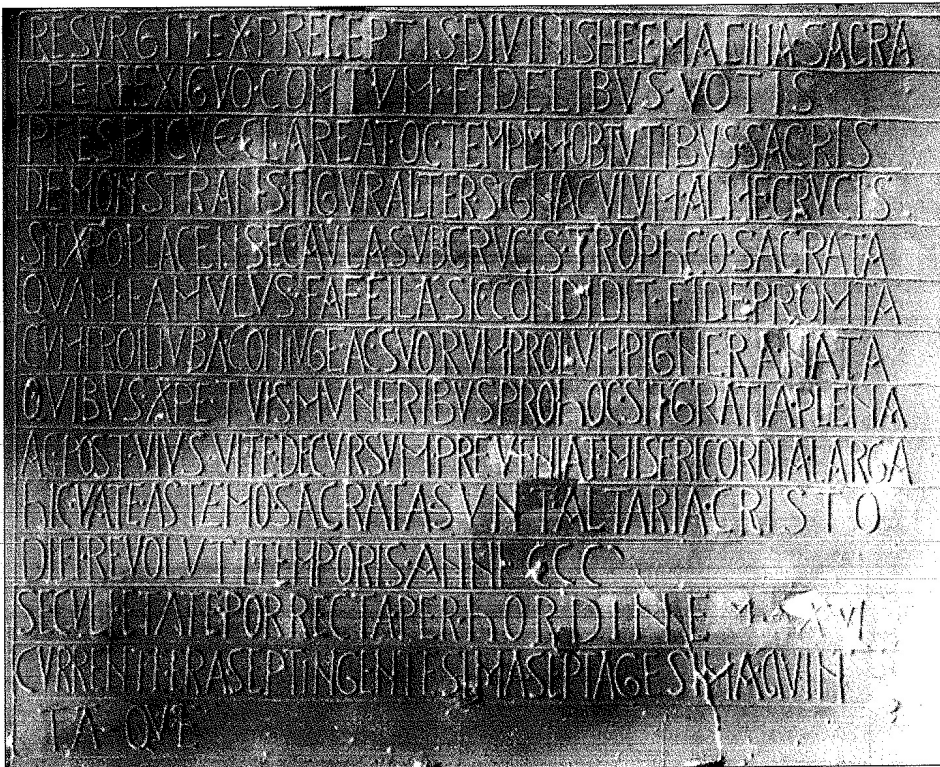 RESVRGIT·EX·PRECEPTIS·DIVINIS·HEC·MACINA SACRA
OPERE EXIGVO·COMTVM·FIDELIBVS·VOTIS
PRESPICVE·CLAREAT·OC TEMPLM OBTVTIBVS SACRIS
DEMONSTRANS FIGVRALTER SIGNACVLVM ALME CRVCIS
SIT XPO PLACENS EC AVLA SVB CRVCIS·TROPhEO·SACRATA
QVAM·FAMVLVS·FAFEILA·SIC CONDIDIT·FIDE PROMTA
CVM FROILIVBA CONIVGE AC·SVORVM PROLVM PIGNERA·NATA
QVIBVS·XPE·TVIS MVNERIBVS PRO hOC·SIT GRATIA PLENA
AC·POST·VIVS·VITE DECVRSVM PREVENIAT MISERICORDIA LARGA
hIC·VATE ASTEMO SACRATA SVNT ALTARIA·CRISTO
DIEI·REVOLVTI TEMPORIS·ANNI·CCC
SECVLI ETATE·PORRECTA PER hORDINE M XVI
CVRRENTE ERA SEPTINGENTESIMA SEPTAGESIMA QVIN
TA·QVE